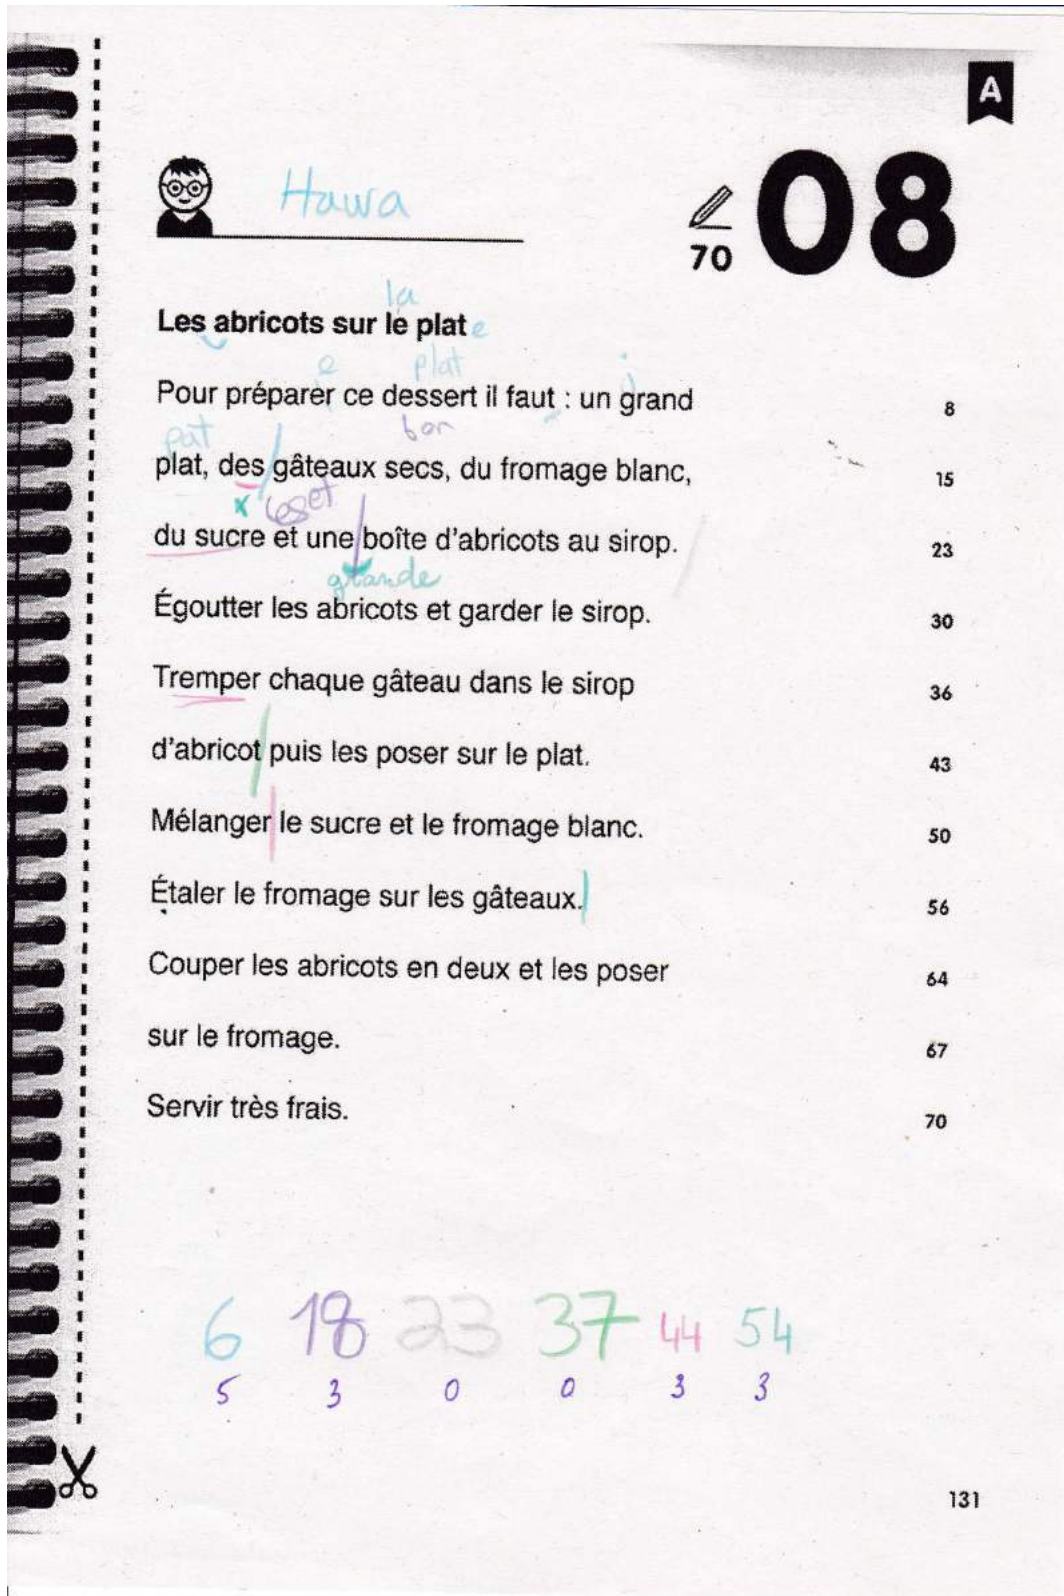 A
Hawa
70
08
la
Les abricots sur le plat e
e plat j
Pour préparer ce dessert il faut : un grand 8
pat bon
plat, des gâteaux secs, du fromage blanc, 15
x les et
du sucre et une boîte d'abricots au sirop. 23
grande
Égoutter les abricots et garder le sirop. 30
Tremper chaque gâteau dans le sirop 36
d'abricot puis les poser sur le plat. 43
Mélanger le sucre et le fromage blanc. 50
Étaler le fromage sur les gâteaux. 56
Couper les abricots en deux et les poser 64
sur le fromage. 67
Servir très frais. 70
6 18 23 37 44 54
5 3 0 0 3 3
131